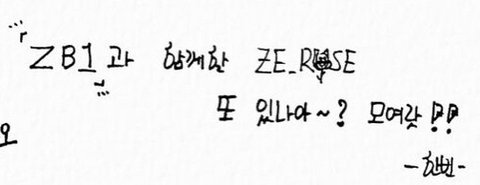 ZB1과 함께한 ZE_ROSE
또 있나아~? 모여랏!!
오
-한빈-